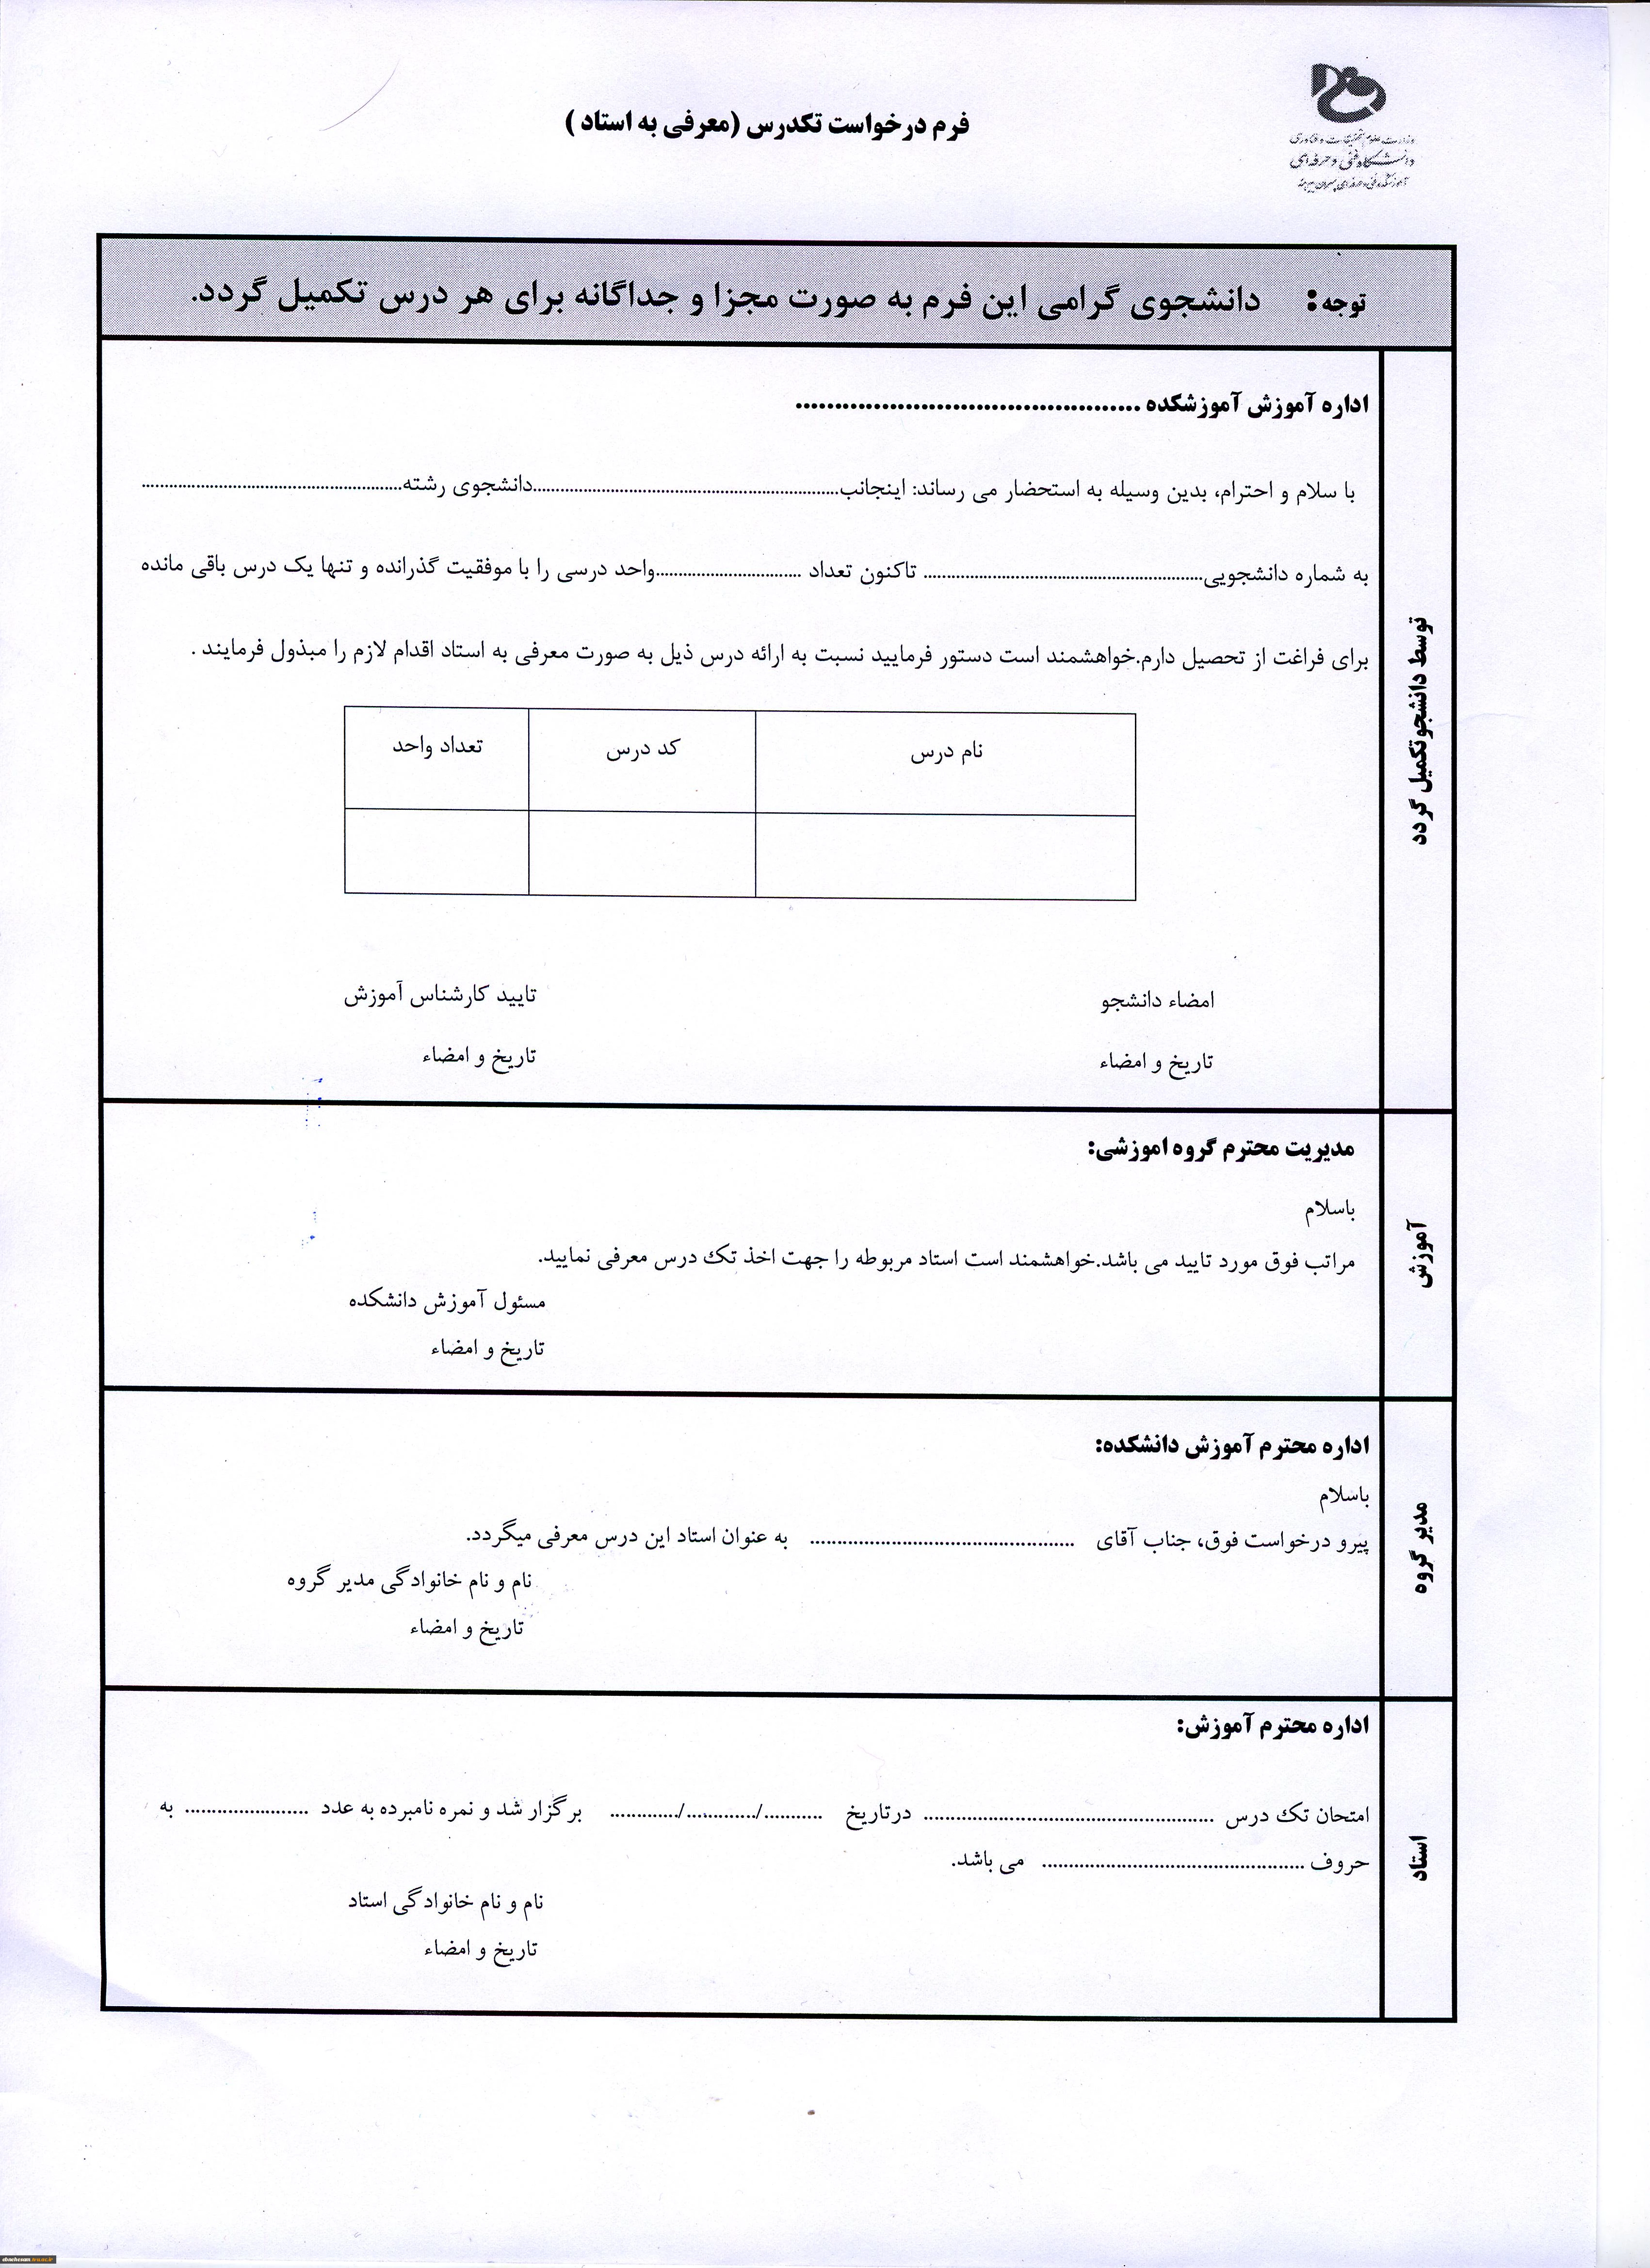 وزارت علوم تحقیقات و فناوری
دانشگاه فنی و حرفه‌ای
آموزشکده فنی و حرفه‌ای پسران بیرجند
فرم درخواست تکدرس (معرفی به استاد )
توجه: دانشجوی گرامی این فرم به صورت مجزا و جداگانه برای هر درس تکمیل گردد.
توسط دانشجو تکمیل گردد
اداره آموزش آموزشکده ............................................
با سلام و احترام، بدین وسیله به استحضار می رساند: اینجانب............................................................دانشجوی رشته....................................................
به شماره دانشجویی....................................................... تاکنون تعداد .............................واحد درسی را با موفقیت گذرانده و تنها یک درس باقی مانده
برای فراغت از تحصیل دارم.خواهشمند است دستور فرمایید نسبت به ارائه درس ذیل به صورت معرفی به استاد اقدام لازم را مبذول فرمایند .
نام درس کد درس تعداد واحد
امضاء دانشجو تایید کارشناس آموزش
تاریخ و امضاء تاریخ و امضاء
آموزش
مدیریت محترم گروه اموزشی:
باسلام
مراتب فوق مورد تایید می باشد.خواهشمند است استاد مربوطه را جهت اخذ تک درس معرفی نمایید.
مسئول آموزش دانشکده
تاریخ و امضاء
مدیر گروه
اداره محترم آموزش دانشکده:
باسلام
پیرو درخواست فوق، جناب آقای ................................................ به عنوان استاد این درس معرفی میگردد.
نام و نام خانوادگی مدیر گروه
تاریخ و امضاء
استاد
اداره محترم آموزش:
امتحان تک درس ..................................................... درتاریخ .........../............./............. برگزار شد و نمره نامبرده به عدد ....................... به
حروف ................................................ می باشد.
نام و نام خانوادگی استاد
تاریخ و امضاء